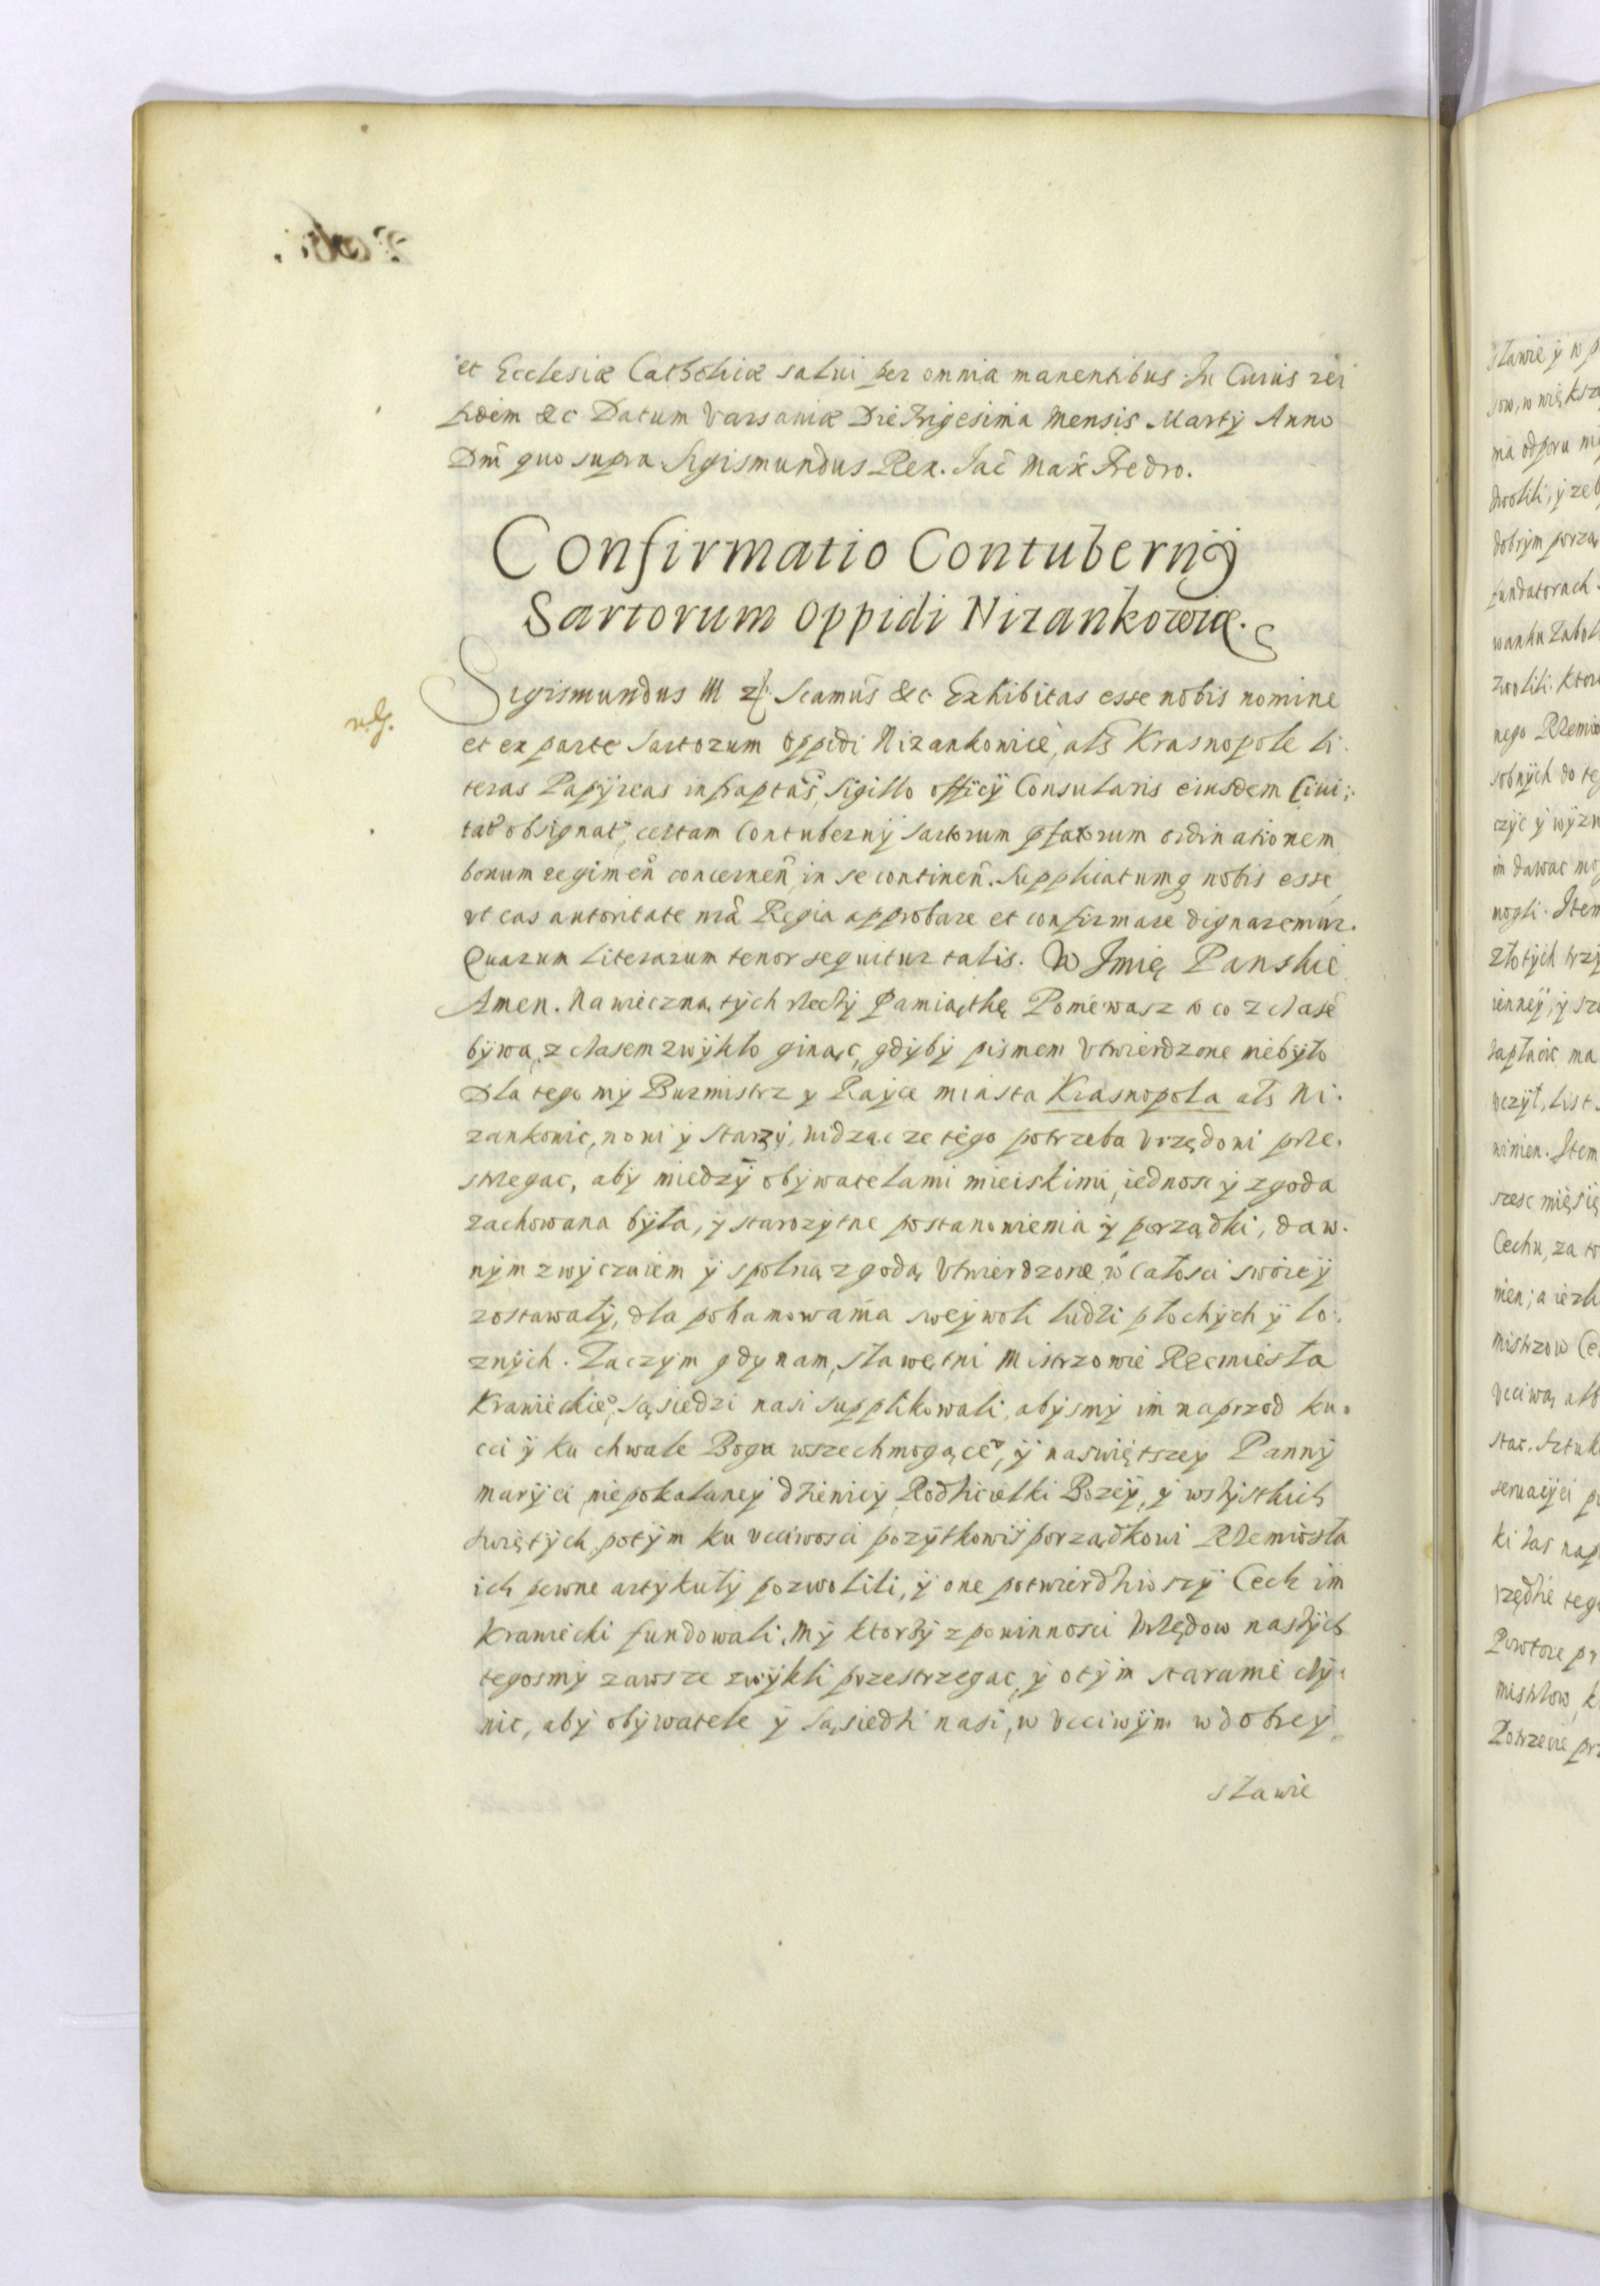 et Ecclesiæ Catholicæ salui per omnia manentibus. In Cuius rei
fidem &c Datum Varsaviæ Die Trigesima Mensis Martÿ Anno
Dnī quo supra Sigismundus Rex. Jac̃ Max̃ Fredro.
Confirmatio Contubernÿ
Sartorum Oppidi Nizankowiæ.
Sigismundus III &c Scamus̃ &c Exhibitas esse nobis nomine
et ex parte Sartorum Oppidi Nizankowice, als̃ Krasnopole li
teras Papÿreas infraptas̃, Sigillo officÿ Consularis eiusdem Ciui:
tat' obsignat', certam Contubernÿ Sartorum pfatorum ordinationem
bonum regimeñ concerneñ in se contineñ. Supplicatumq nobis esse
vt eas autoritate nrã Regia approbare et confirmare dignaremur.
Quarum literarum tenor sequitur talis. W Jmię Panskie
Amen. Na wieczną tÿch rzeczÿ Pamiątkę Poniewasz to co z czasē
bÿwa, z czasem zwÿkło ginąc, gdÿbÿ pismem vtwierdzone niebÿło
Dla tego mÿ Burmistrz y Rayce miasta Krasnopola als Ni.
zankowic, nowi ÿ starzÿ, widząc ze tego potrzeba vrzędowi prze.
strzegac, abÿ miedzÿ obÿwatelami mieiskimi, iednosc ÿ zgoda
zachowana bÿła, ÿ starozytne postanowienia ÿ porządki, daw.
nÿm zwÿczaiem ÿ spolną zgodą vtwierdzone w całosci swoieÿ
zostawałÿ, dla pohamowania sweÿwoli ludzi płochÿch ÿ lo:
znÿch. Zaczÿm gdy nam, sławętni Mistrzowie Rzemiesła
Krawieckie°, sąsiedzi nasi supplikowali, abÿsmÿ im naprzod ku.
cci ÿ ku chwale Bogu wszechmogące°, ÿ naswiętszeÿ Pannÿ
Marÿei niepokalaneÿ dziewicÿ Rodzicielki Bozeÿ, ÿ wszÿstkich
swiętÿch, potÿm ku vcciwosci pozÿtkowi ÿ porządkowi Rzemiosła
ich pewne artÿkułÿ pozwolili, ÿ one potwierdziwszÿ Cech im
Krawiecki fundowali. Mÿ ktorzÿ z powinnosci Vrzędow naszÿch
tegosmÿ zawsze zwÿkli przestrzegac, ÿ otÿm staranie czÿ:
nic, abÿ obÿwatele ÿ sąsiedzi nasi, w vcciwÿm w dobreÿ
sławie